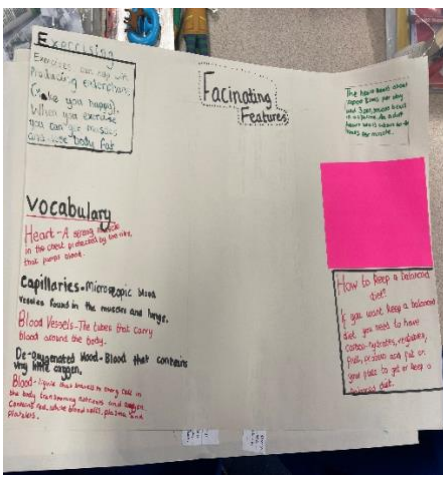 Exercising
Exercises can help with
Producing endorphins
(Make you happy).
When you exercise
you can get muscles
and lose body fat
Facinating
Features
The heart beats about
per day
and
in a lifetime. An adult
heart beats
beats per minute.
Vocabulary
Heart-A strong muscle
in the chest protected by the ribs,
that pumps blood.
Capillaries-Microscopic blood
vessles found in the muscles and lungs.
Blood Vessels-The tubes that carry
blood around the body.
De-oxygenated blood-Blood that contains
very little oxygen.
Blood-liquid that travels to every cell in
the body transporting nutrients and oxygen.
Contains red, white blood cells, plasma and
platelets.
How to keep a balanced
diet?
If you want keep a balanced
diet you need to have
carbo-hydrates, vegetables,
fruit, protein and put on
your plate to get or keep a
balanced diet.